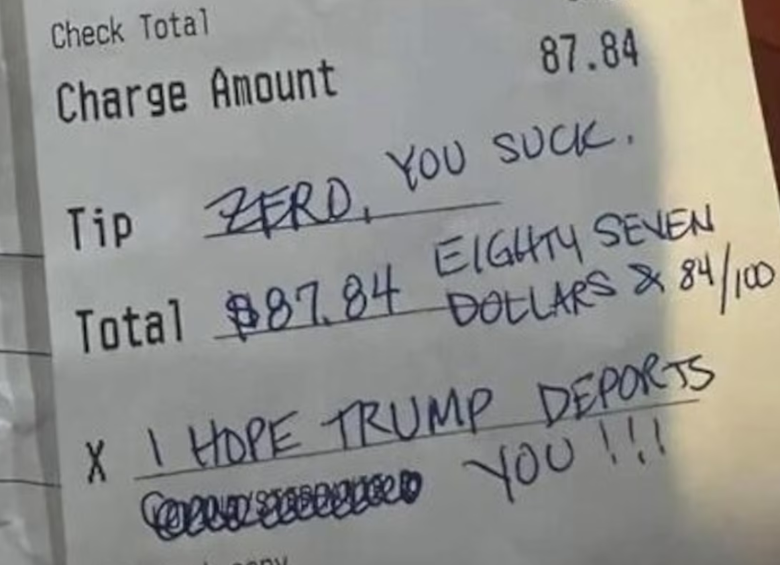 Check Total
Charge Amount 87.84
Tip ZERO, YOU SUCK.
Total $87.84 EIGHTY SEVEN
DOLLARS & 84/100
X I HOPE TRUMP DEPORTS
YOU !!!